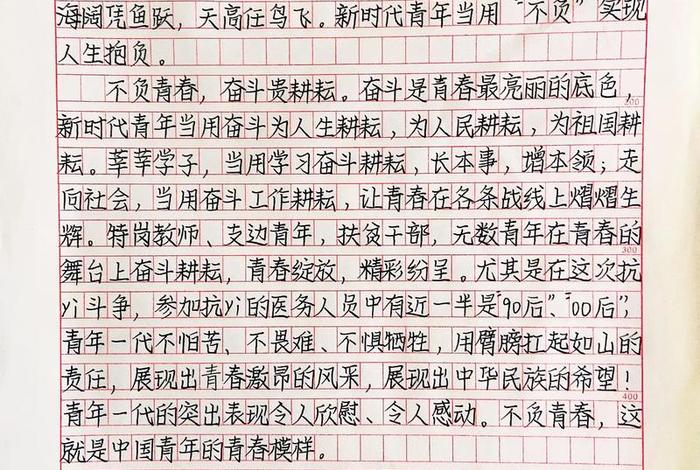 海阔凭鱼跃，天高任鸟飞。新时代青年当用“不负”实现
人生抱负。
不负青春，奋斗贵耕耘。奋斗是青春最亮丽的底色，
200
新时代青年当用奋斗为人生耕耘，为人民耕耘，为祖国耕
耘。莘莘学子，当用学习奋斗耕耘，长本事，增本领；走
向社会，当用奋斗工作耕耘，让青春在各条战线上熠熠生
辉。特岗教师、支边青年，扶贫干部，无数青年在青春的
300
舞台上奋斗耕耘，青春绽放，精彩纷呈。尤其是在这次抗
yi斗争，参加抗yi的医务人员中有近一半是“90后”、“00后”，
青年一代不怕苦、不畏难、不惧牺牲，用臂膀扛起如山的
责任，展现出青春激昂的风采，展现出中华民族的希望！
400
青年一代的突出表现令人欣慰、令人感动。不负青春，这
就是中国青年的青春模样。